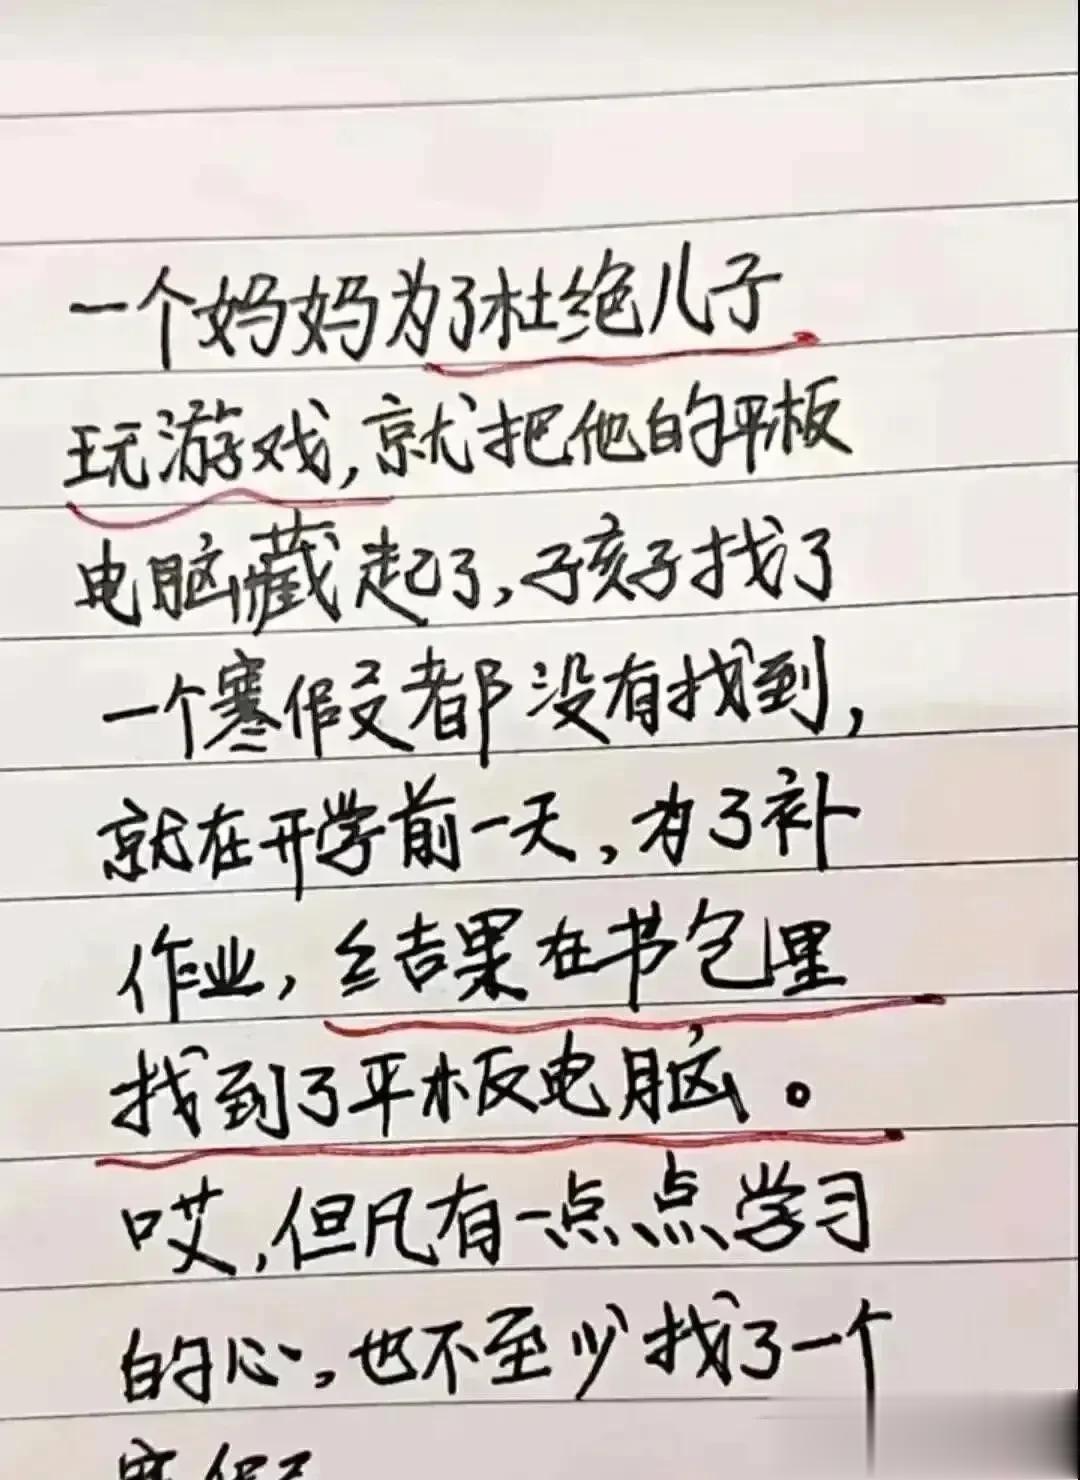 一个妈妈为了杜绝儿子
玩游戏,就把他的平板
电脑藏起了,子孩子找了
一个寒假都没有找到,
就在开学前一天,为了补
作业,结果在书包里
找到了平板电脑。
哎,但凡有一点点学习
的心,也不至少找了一个
寒假